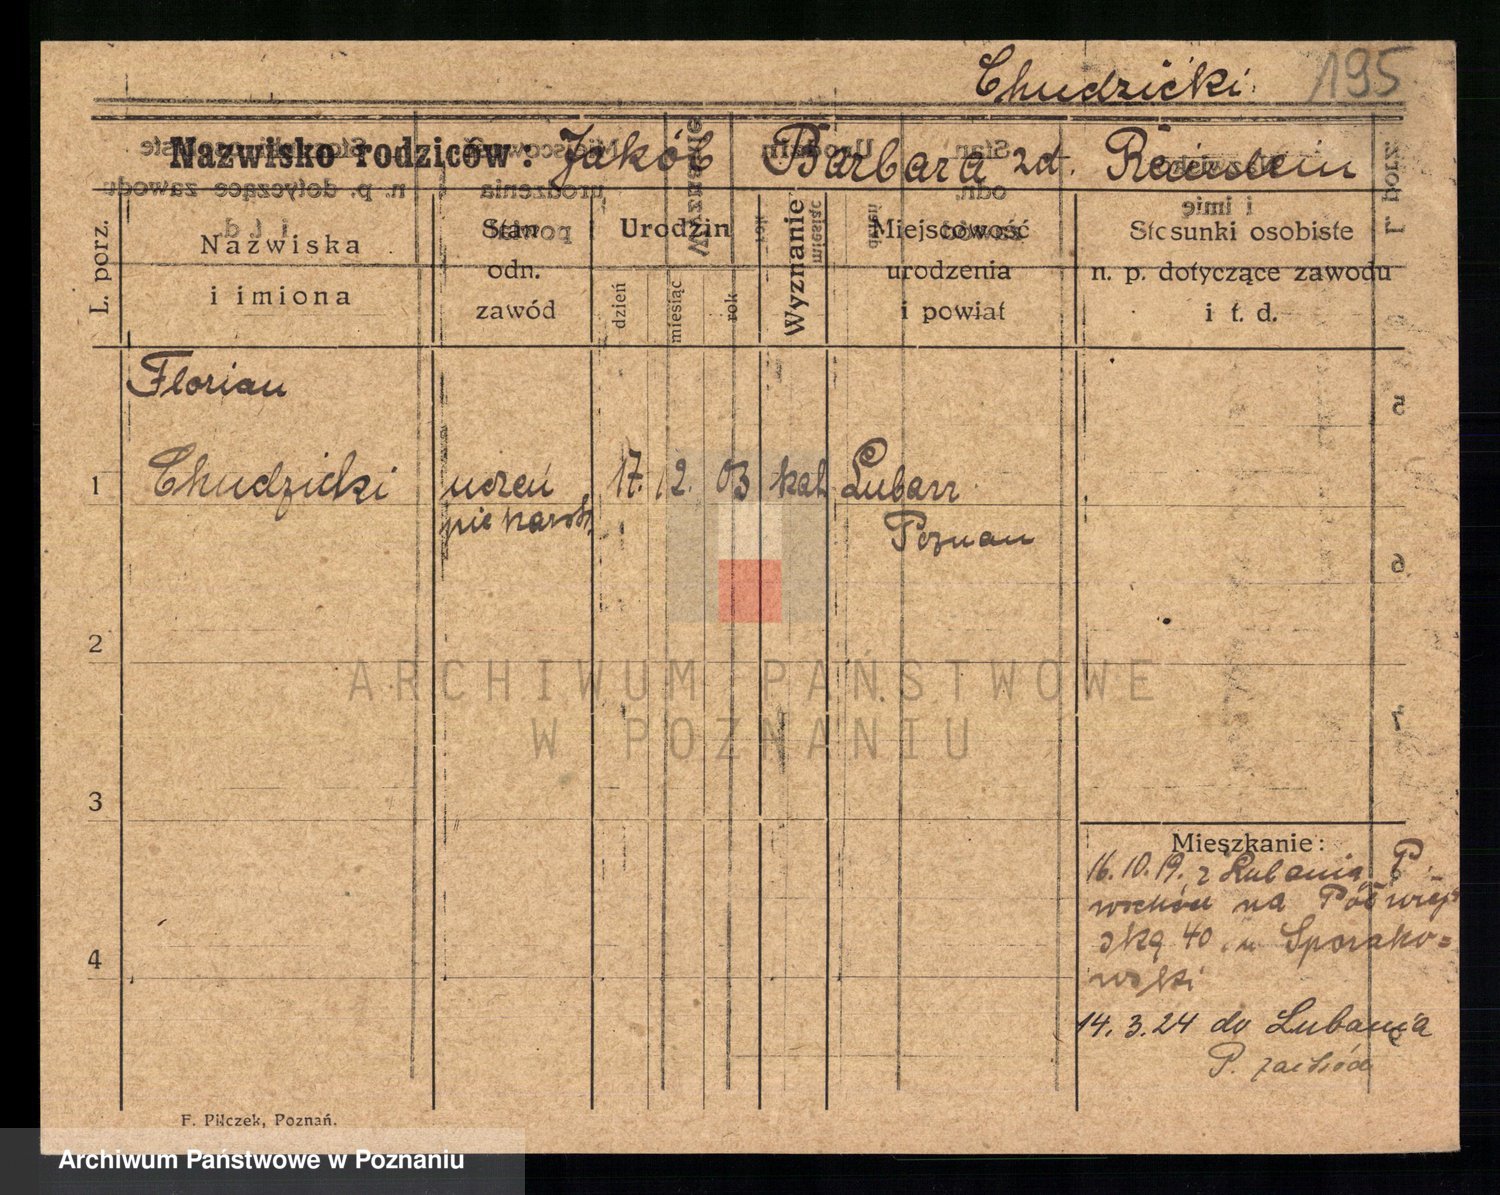 Chudzicki 195
Nazwisko rodziców: Jakób Barbara zd.
L. porz.
Nazwiska
i imiona
Stan
odn.
zawód
Urodzin
dzień
miesiąc
rok
Wyznanie
Miejscowość
urodzenia
i powiat
Stosunki osobiste
n. p. dotyczące zawodu
i t. d.
Florian
1 Chudzicki uczeń 17. 12. 03 kat. Lubań
piekarsk. Poznań
2
3
4
Mieszkanie:
16.10.19. z Lubania P.
wschód na Półwiej
ską 40 Sporako=
wski
14.3.24 do Lubania
P. zachód
F. Pilczek, Poznań.
ARCHIWUM PAŃSTWOWE
W POZNANIU
Archiwum Państwowe w Poznaniu